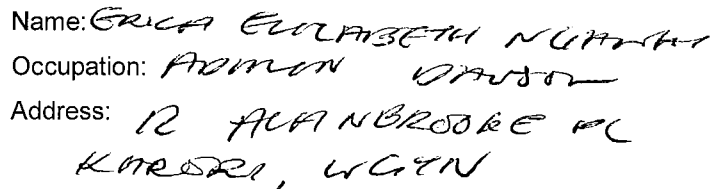 Name: ERICA ELIZABETH
Occupation: ADMIN
Address: 12 ALANBROOKE PL
KARORI, WGTN